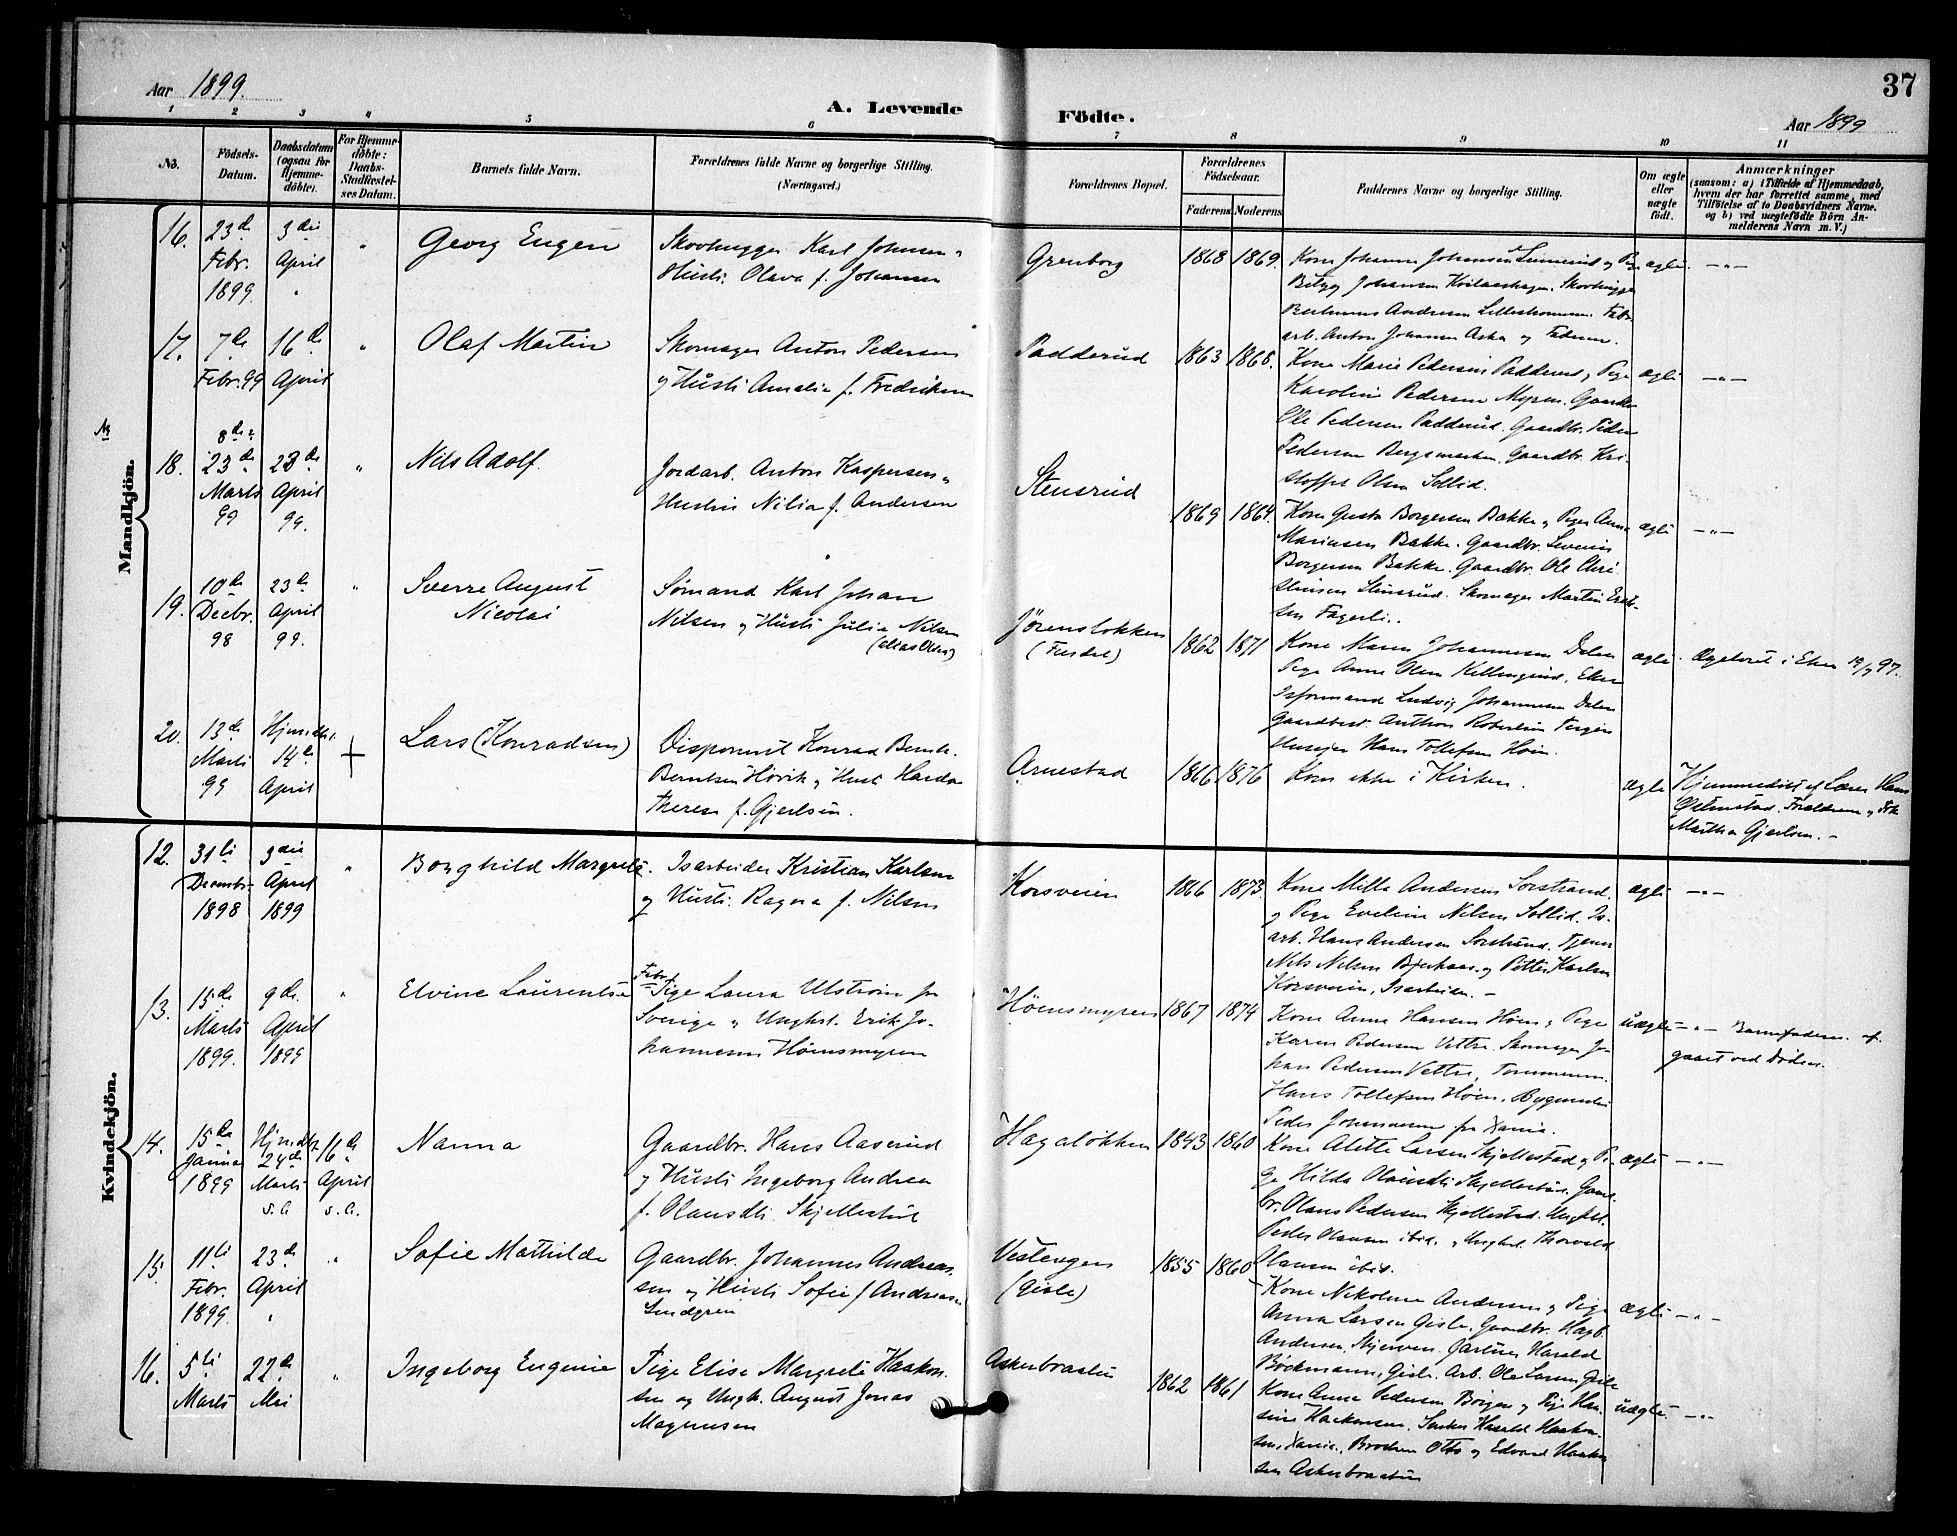 37
Aar 1899.
A. Levende
Födte.
Aar 1899
1 2 3 4 5 6 7 8 9 10 11
No.
Födsels-
Datum.
Daabsdatum
(ogsaa for
Hjemme-
döbte).
For Hjemme-
döbte:
Daabs-
Stadfæstel-
ses Datum.
Barnets fulde Navn.
Forældrenes fulde Navne og borgerlige Stilling.
(Næringsvei.)
Forældrenes Bopæl.
Forældrenes
Födselsaar.
Faderens Moderens
Faddernes Navne og borgerlige Stilling.
Om ægte
eller
uægte
födt.
Anmærkninger
(saasom: a) i Tilfælde af Hjemmedaab,
hvem der har forrettet samme, med
Tilföielse af to Daabsvidners Navne.
og b) ved uægtefödte Börn An-
melderens Navn m. V.)
Mandkjön.
16.
23de
Febr.
1899.
3die
April
"
Georg Eugen
Skovhugger Karl Johnsen
Hustr. Olava f. Johansen
Grenborg
1868 1869.
Kone Johanne Johansen og Pige
Johansen Skovhugger
Andresen
arb. Anton Johansen Asker og Faderen.
ægte
17.
7de
Febr. 99
16de
April
"
Olaf Martin
Skomager Anton Pedersen
og Hustr. Amalie f. Fredriksen
Padderud
1863 1868.
Kone Marie Pedersen Padderud og Pige
Karoline Pedersen Myren. Gaardbr.
Ole Pedersen Padderud. Gaardbr. Peder
Pedersen Bergsmarken. Gaardbr. Kri-
stoffer Olsen Sollid.
ægte
18.
8de?
23de
Marts
99
23de
April
99.
"
Nils Adolf.
Jordarb. Anton Kaspersen
Hustru Nilia f. Andersen
Stensrud
1869 1864.
Kone Gusta Borgersen Bakke og Pige Anna
Mariusen Bakke. Gaardbr. Severin
Borgersen Bakke. Gaardbr. Ole Chri-
stensen Stensrud. Skomager Martin Erik-
sen Fagerli.
ægte
19.
10de
Decbr.
98
23de
April
99.
"
Sverre August
Nicolai
Sömand Karl Johan
Nilsen og Hustr. Julie Nilsen
(alias Olsen)
Jörenslökken
1862 1871
Kone Maren Johannesen Dalen
Pige Anna Olsen
Isformand Ludvig Johannesen Dalen
Husejer Hans Tollefsen Høin.
ægte
20.
13de
Marts
99
Hjemdbt.
14de
April
+
Lars (Konradsen)
Disponent Konrad Bernh.
Berntsen Hövik og Hust.
Therese f. Gjerlsen.
Arnestad
1866 1876
Kom ikke i Kirken.
ægte
Hjemmedöbt af Lærer Hans
Forældrene og Frk.
Martha Gjerlsen.
Kvindekjön.
12.
31te
Decembr.
1898
3die
April
1899
"
Borghild Margrete.
Isarbeider Kristian Karlsen
og Hustr. Ragna f. Nilsen
Korsveien
1866 1873.
Kone Milla Andersen Sorstrand.
og Pige Eveline Nilsen Sollid. Is-
arb. Hans Andersen Sorstrand. Tjener
Nils Nilsen og Petter Karlsen
Korsveien, Isarbeider.
ægte
13.
15de
Marts
1899.
9de
April
1899
"
Elvine Laurentse
Pige Laura Ulström fr
Sverige og Ungk. Erik Jo-
hannesen Hönsmyren
Hönsmyren
1867 1874
Kone Anna Hansen Høen og Pige
Karen Pedersen Vettre. Skomager Jo-
han Pedersen Vettre, Tømmerm.
Hans Tollefsen Høen. Bygmester
Peder Johannesen fr Xania.
uægte
Barnefaderen af-
gaaet ved Døden.
14.
15de
Januar
1899
Hjemdbt
24de
Marts
s. A.
16de
April
s. A.
Nanna
Gaardbr. Hans Aaserud
og Hustr. Ingeborg Andrea
f. Olausdtr. Skjellestad
Hagalökken
1843 1860
Kone Alette Larsen Skjellestad og Pi-
ge Hilda Olausdtr. Skjellestad. Gaard-
br. Olaus Pedersen Skjellestad. Ungkl.
Peder Olausen ibid. og Ungkl. Thorvald
Olausen ibid.
ægte
15.
11te
Febr.
1899.
23de
April
"
Sofie Mathilde
Gaardbr. Johannes Andreas-
sen og Hustr. Sofie f Andreasen
Vestengen
(Gisle)
1855 1860
Kone Nikoline Andersen og Pige
Anna Larsen Gisle. Gaardbr. Hagb.
Andersen Skjerven. Harald
Böckmann, Gisle. Arb. Ole Larsen Gisle
ægte
16.
5te
Marts
22de
Mai
"
Ingeborg Eugenie
Pige Elise Margrete Haakon-
sen og Ungk. August Jonas
Magnusen
Askerbraaten
1862 1861
Kone Anna Pedersen Börgen og Pige Han-
sine Haakonsen. Harald Haakon-
sen, Xania. Brødrene Otto og Edvard Haakon-
sen Askerbraaten
uægte